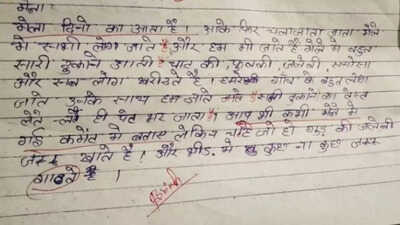 मेला:
मेला दिनो का आता है। आके फिर चलाजाता जाता मेले
मे सभी लोग जाते है और हम भी जाते है मेले मे बहुत
सारी दुकाने आती चाट की, फुलकी, जलेबी, समोसा
और सब लोग खरीदते है। हमारे गाँव के बहुत लोग
जाते उनके साथ हम जाते है सभी दुकाने का
लेते ही पेट भर जाता। आप भी कभी मेले मे
गई कमेंट मे बताए लेकिन चाहे जो हो गुड़ की जलेबी
जरूर खाते है! और भीड़ मे कुछ ना कुछ जरूर
गाते है।